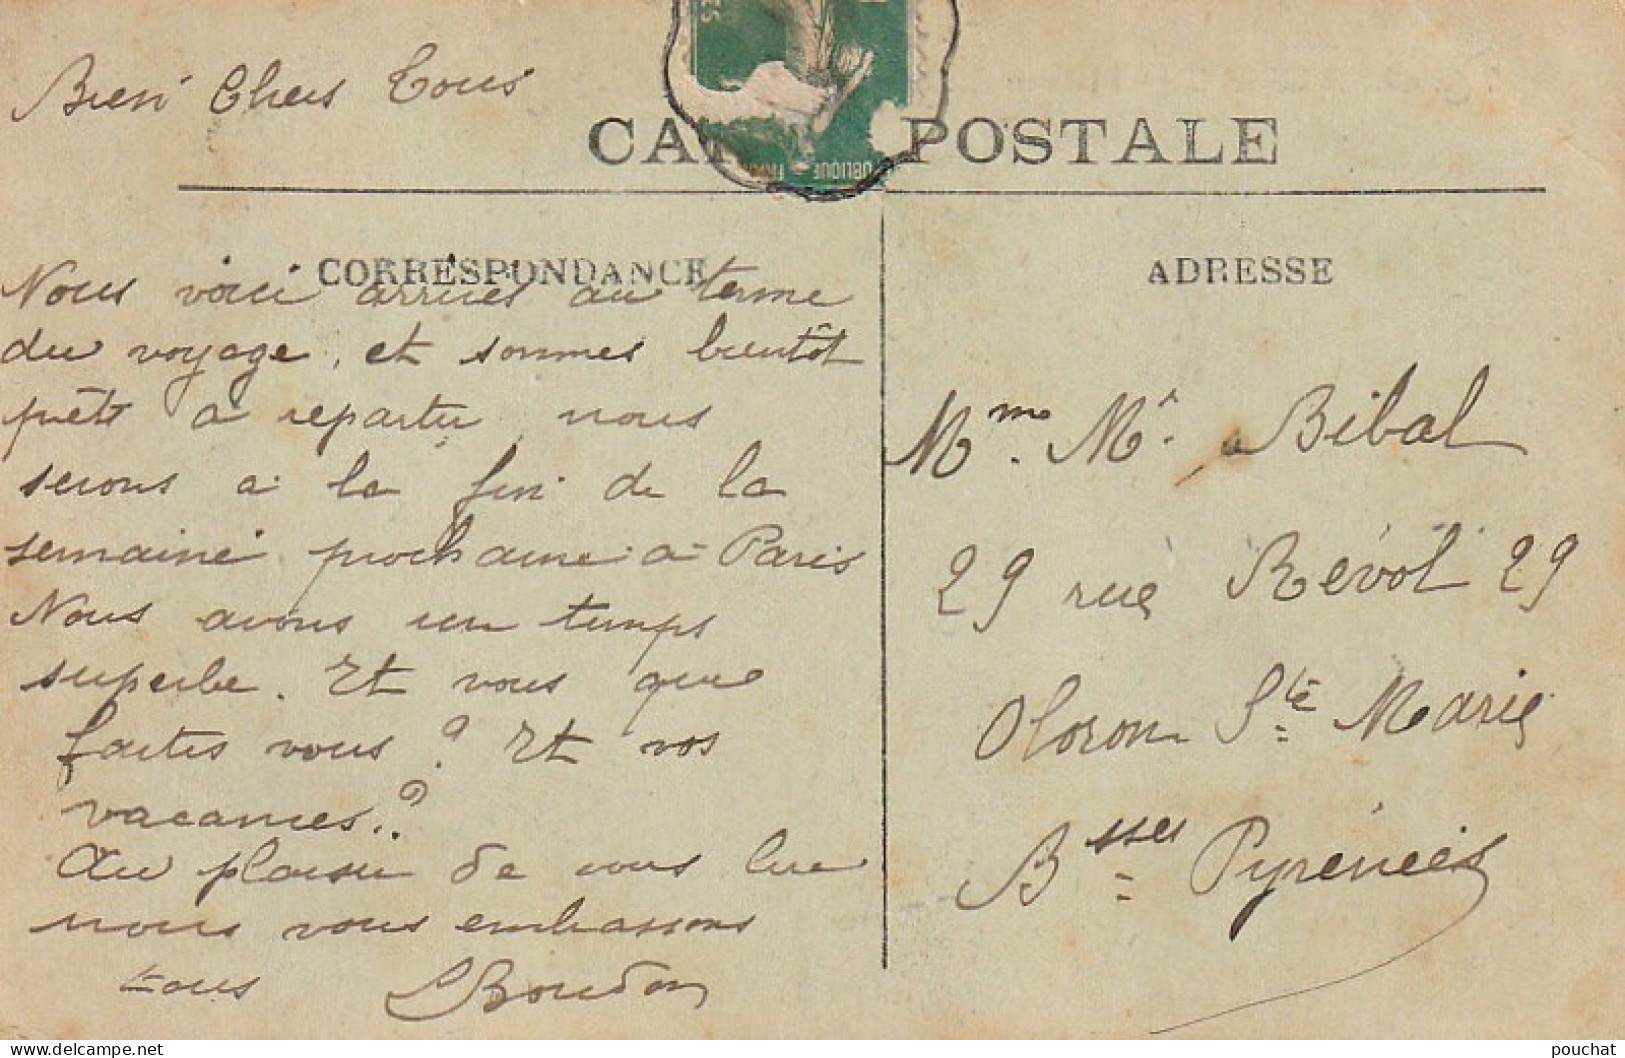 Bien Chers Tous
CARTE POSTALE
CORRESPONDANCE
ADRESSE
Nous voici arrivés au terme
du voyage, et sommes bientôt
prêts à repartir nous
serons à la fin de la
semaine prochaine à Paris
Nous avons un temps
superbe. Et vous que
faites vous ? Et vos
vacances ?
Au plaisir de vous lire
nous vous embrassons
tous
Boudon
Mme. Mr. Bibal
29 rue Révol 29
Oloron Ste Marie
Bsses Pyrénées
pouchat